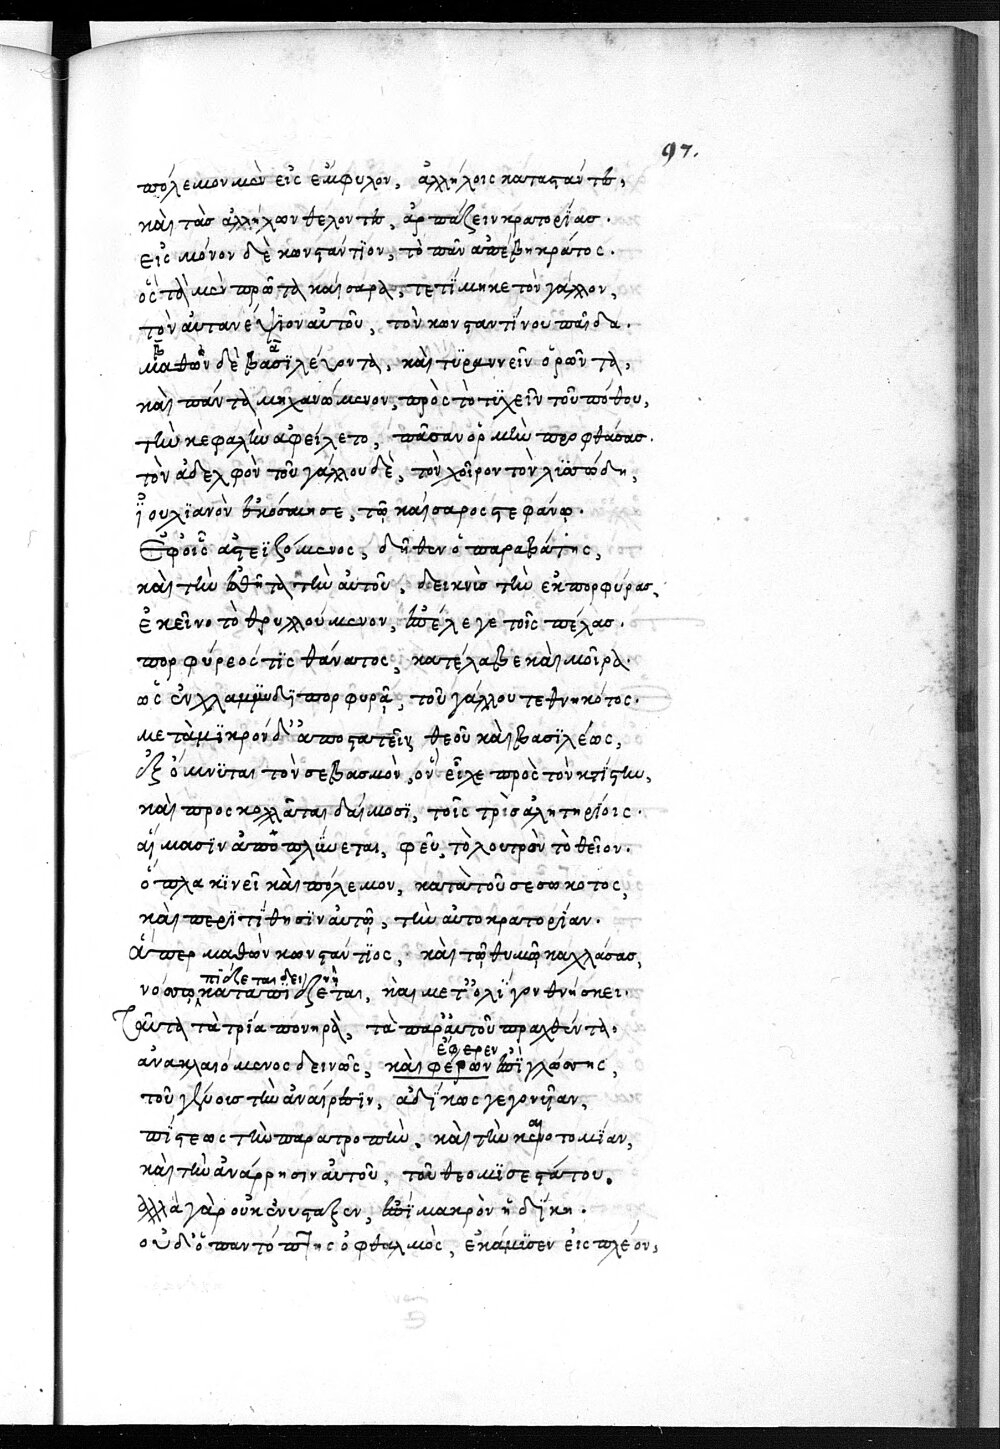 97.
πόλεμον μὲν εἰς ἔμφυλον, ἀλλήλοις καταστάντες,
καὶ τὰς ἀλλήλων θέλοντες, ἁρπάζειν κρατορΐας.
εἰς μόνον δὲ κωνστάντϊον, τὸ πᾶν ἀπέβη κράτος.
ὃς τὰ μὲν πρῶτα καίσαρα, τετίμηκε τὸν γάλλον,
τὸν αὐτανέψϊον αὐτοῦ, τὸν κωνσταντίνου παῖδα.
μαθὼν δὲ βασϊλεύοντα, καὶ τϋραννεῖν ὁρῶντα,
καὶ πάντα μηχανώμενον, πρὸς τὸ τϋχεῖν τοῦ πόθου,
τὴν κεφαλὴν ἀφείλετο, πᾶσαν ὁρμὴν προφθάσας.
τὸν ἀδελφὸν τοῦ γάλλου δὲ, τὸν χοῖρον τὸν λϊσσώδη,
ἰουλϊανὸν ἐκόσμησε, τῷ καίσαρος στεφάνῳ.
Ἐφ' οἷς ἀστεϊζόμενος, δῆθεν ὁ παραβάτης,
καὶ τὴν ἐσθῆτα τὴν αὐτοῦ, δεικνὺς τὴν ἐκ πορφύρας,
ἐκεῖνο τὸ θρυλλούμενον, ἐπέλεγε τοῖς πέλας.
πορφύρεός τϊς θάνατος, κατέλαβε καὶ μοῖρα
ὡς ἐν χλαμμΰδϊ πορφυρᾷ, τοῦ γάλλου τεθνηκότος.
μετὰ μϊκρὸν δ' ἀποστατεῖ, θεοῦ καὶ βασϊλέως,
ἐξόμνϋται τὸν σεβασμὸν, ὃν εἶχε πρὸς τὸν κτίστην,
καὶ προσκολλᾶται δαίμοσϊ, τοῖς τρὶς ἀλητηρίοις.
αἵμασϊν ἀποπλΰνεται, φεῦ, τὸ λουτρὸν τὸ θεῖον.
ὅπλα κϊνεῖ καὶ πόλεμον, κατὰ τοῦ σεσωκότος,
καὶ περϊτίθησϊν αὐτῷ, τὴν αὐτοκρατορίαν.
Ἅπερ μαθὼν κωνστάντϊος, καὶ τῷ θυμῷ καχλάσας,
νόσῳ καταπιέζεται, καὶ μετ' ὀλίγον θνήσκει.
πιέζεται δεινῇ
Ταῦτα τὰ τρία πονηρὰ, τὰ παρ' αὐτοῦ πραχθέντα.
ἀνακλαιόμενος δεινῶς, καὶ φέρων ἐπῒ γλώσσης,
ἔφερεν
τοῦ γένους τὴν ἀναίρεσϊν, ἀδΐκως γεγονυῖαν,
πίστεως τὴν παρατροπὴν, καὶ τὴν κενοτομΐαν,
αι
καὶ τὴν ἀνάρρησιν αὐτοῦ, τοῦ θεομϊσεστάτου.
ἀλλὰ γὰρ οὐκ ἐνύσταξεν, ἐπῒ μακρὸν ἡ δΐκη.
οὐδ' ὁ παντόπτης ὀφθαλμὸς, ἐκάμϋσεν εἰς πλέον,